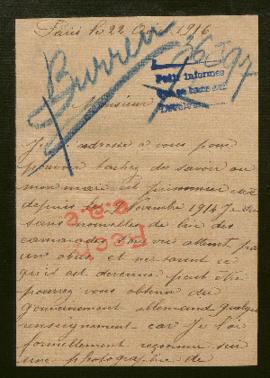 Paris le 22 1916
Bureau
36397
Petit informe
Monsieur
Je m'adresse a vous pour
pouvoir tacher de savoir ou
mon mari est prisonnier car
depuis le Novembre 1914 Je suis
sans nouvelles de lui des
camarades l'ont vu atteint par
un obus et ne savent ce
qu'il est devenue peut être
pourrez vous obtenir du
gouvernement allemand quelque
renseignement car Je l'ai
formellement reconnu sur
une photographie de